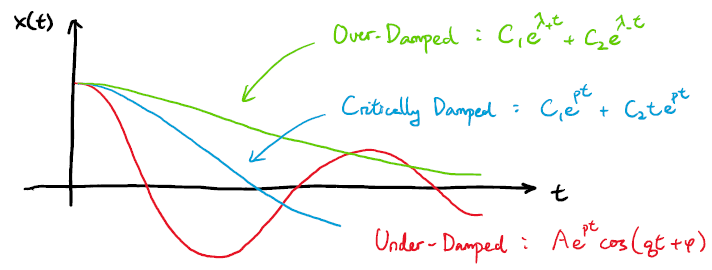 x(t)
Over-Damped : C₁e^{λ₊t} + C₂e^{λ₋t}
Critically Damped : C₁e^{pt} + C₂te^{pt}
t
Under-Damped : Ae^{pt}cos(qt+φ)